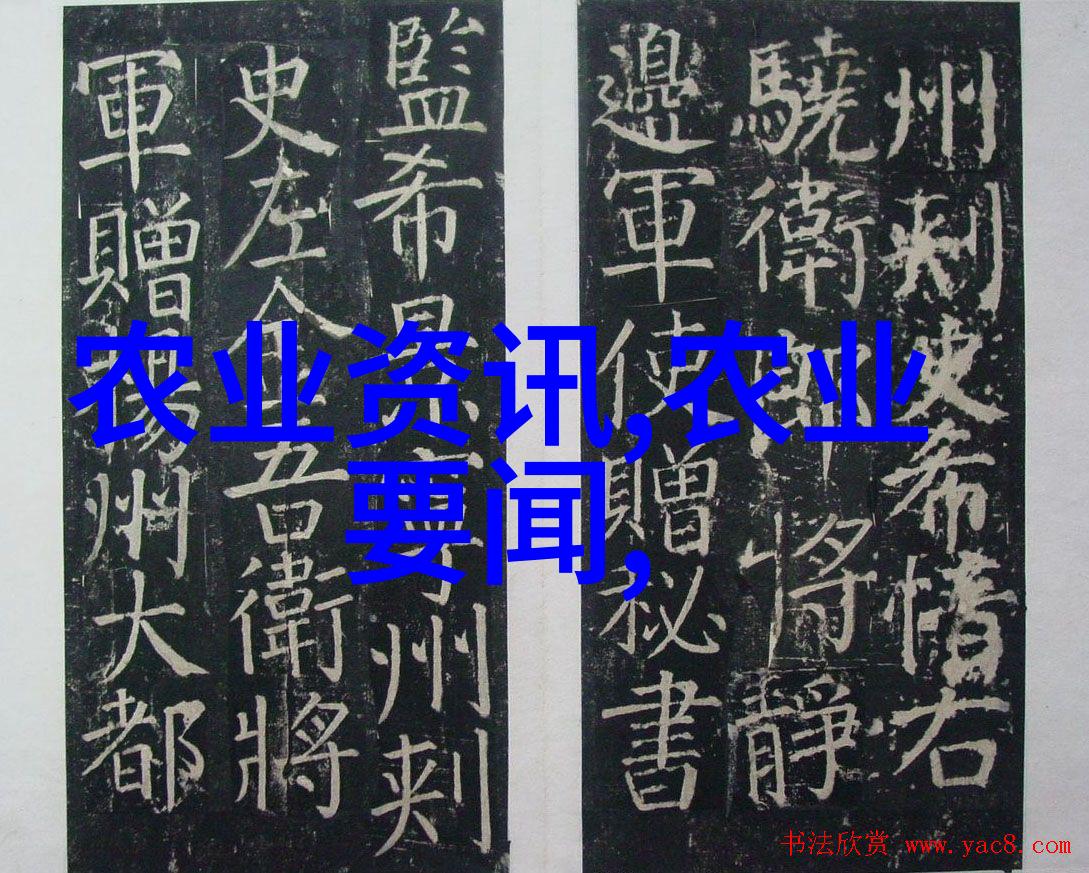 州刺史希惜右
驍衛郎將靜
邊軍使贈秘書
監希景寧州刺
史左金吾衛將
軍贈揚州大都
农业资讯,农业
要闻,
书法欣赏 www.yac8.com